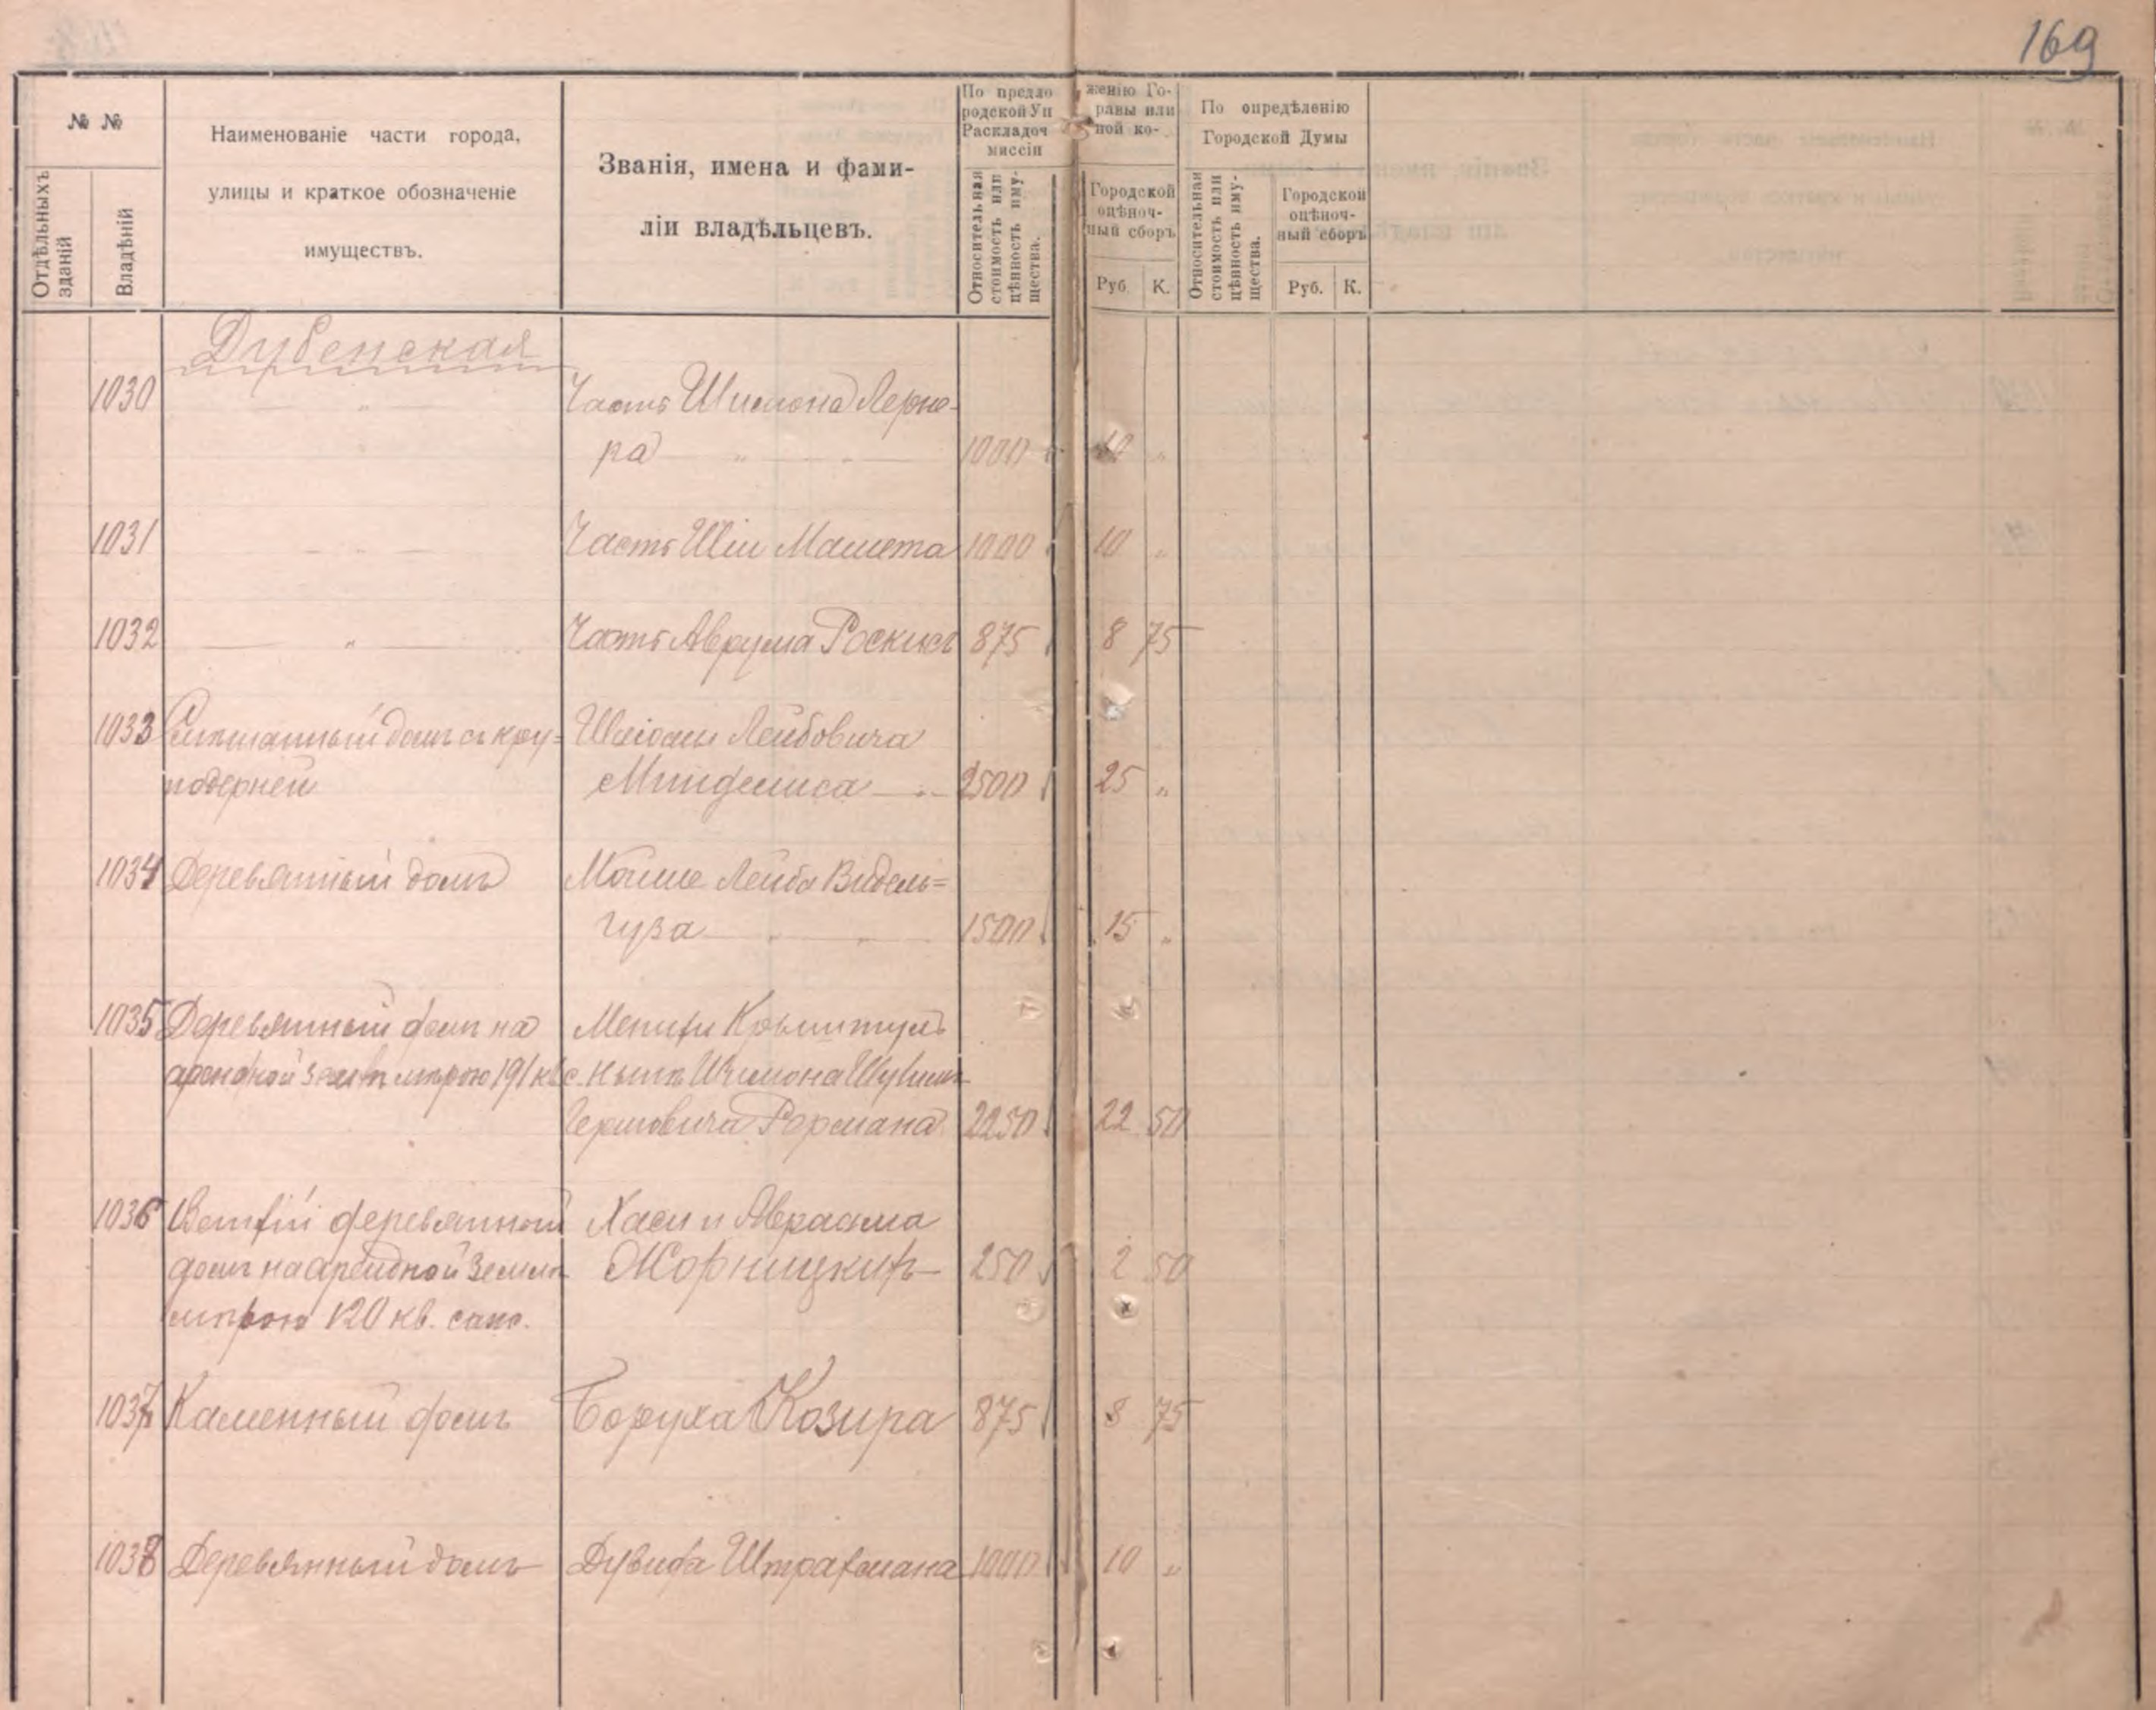 169
№ №
Отдѣльныхъ зданій
Владѣній
Наименованіе части города,
улицы и краткое обозначеніе
имуществъ.
Званія, имена и фами-
ліи владѣльцевъ.
По предло женію Го-
родской Уп равы или
Раскладоч ной ко-
миссіи
Относительная
стоимость или
цѣнность иму-
щества.
Городской
оцѣноч-
ный сборъ
Руб. К.
По опредѣленію
Городской Думы
Относительная
стоимость или
цѣнность иму-
щества.
Городской
оцѣноч-
ный сборъ
Руб. К.
Дубенская
1030 — „ — Часть Шимона Лерне-
ра — „ — „ — 1000 10 „
1031 — „ — Часть Шіи Машета 1000 10 „
1032 — „ — Часть Аврума 875 8 75
1033 Смѣшанный домъ съ кру-
подерней
Лейбовича
2500 25 „
1034 Деревянный домъ Мойше Лейба Видель=
гуза — „ — „ — 1500 15 „
1035 Деревянный домъ на
арендной землѣ мѣрою 191 кв. с.
Гершовича Рормана 2250 22 50
1036 Ветхій деревянный Хаси и Авраама
домъ на арендной землѣ Жорницкихъ — 250 2 50
мѣрою 120 кв. саж.
1037 Каменный домъ Боруха Козира 875 8 75
1038 Деревянный домъ Дувида Штрахмана 1000 10 „